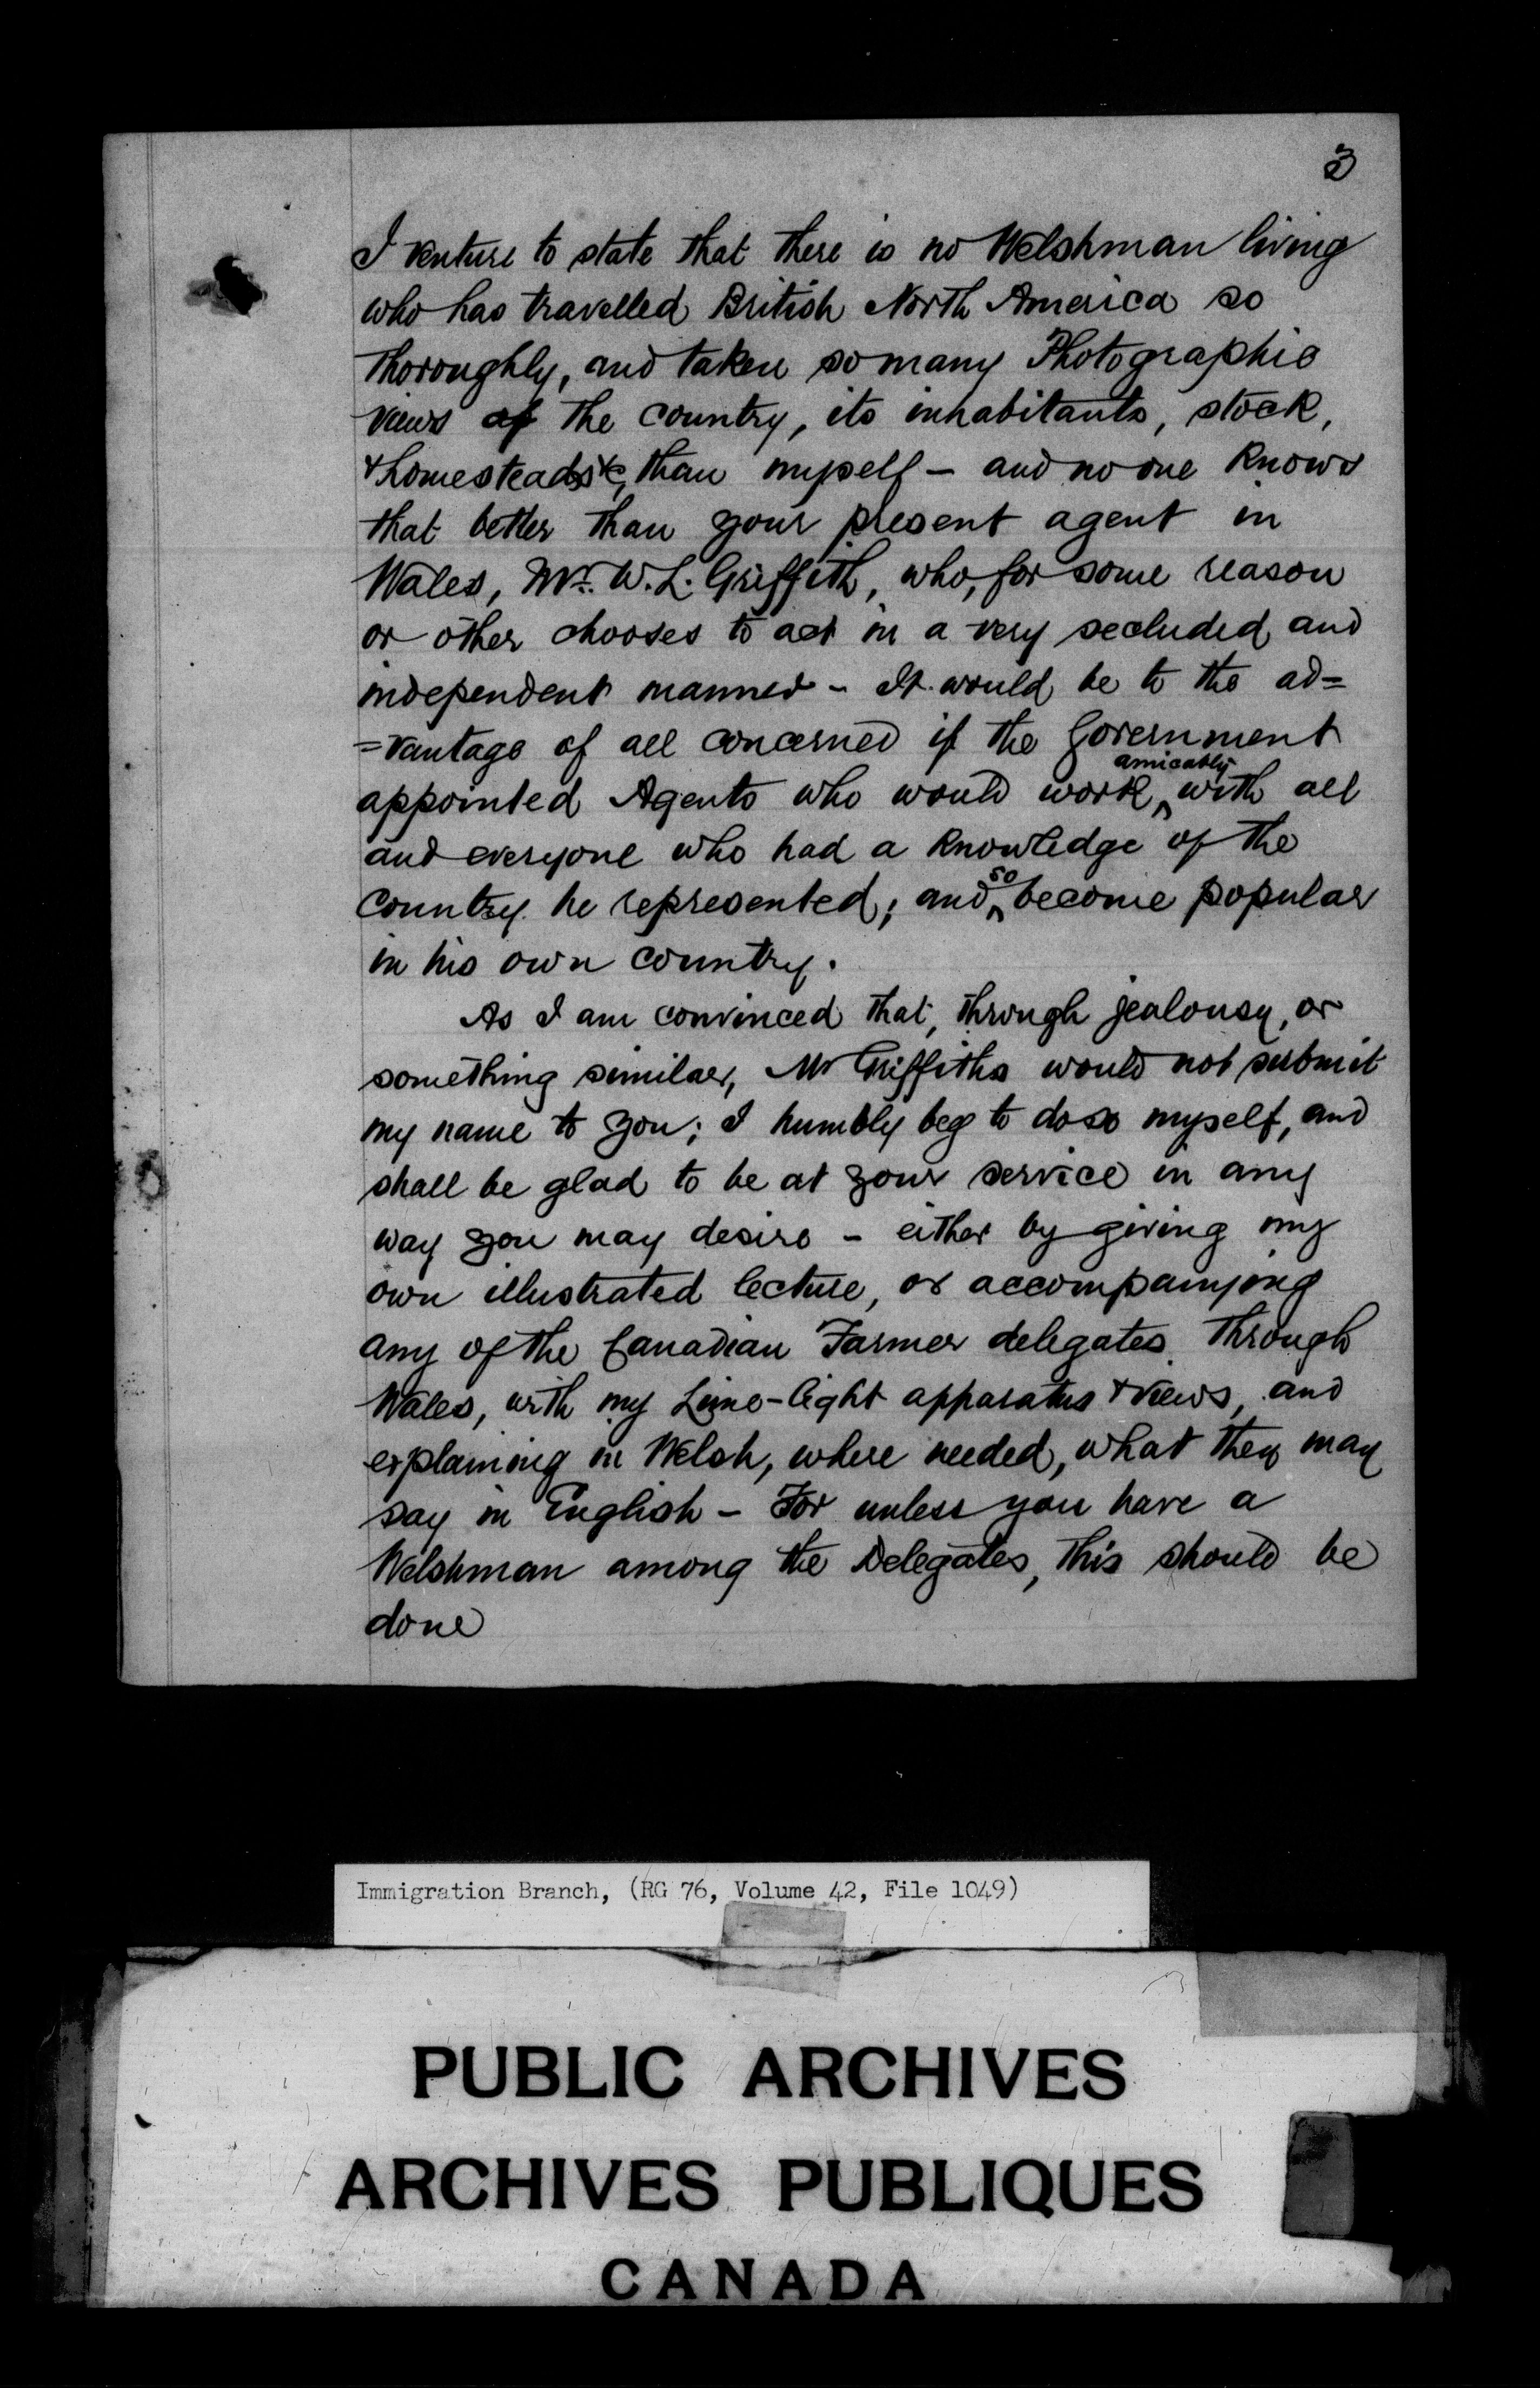 3
I venture to state that there is no Welshman living
who has travelled British North America so
thoroughly, and taken so many Photographic
views of the country, its inhabitants, stock,
& homesteads &c, than myself – and no one knows
that better than your present agent in
Wales, Mr. W. L. Griffith, who, for some reason
or other chooses to act in a very secluded and
independent manner – It would be to the ad=
=vantage of all concerned if the Government
appointed Agents who would work amicably with all
and everyone who had a knowledge of the
country he represented; and so become popular
in his own country.
As I am convinced that, through jealousy, or
something similar, Mr Griffiths would not submit
my name to you; I humbly beg to do so myself, and
shall be glad to be at your service in any
way you may desire – either by giving my
own illustrated lecture, or accompanying
any of the Canadian Farmer delegates through
Wales, with my Lime-light apparatus & views, and
explaining in Welsh, where needed, what they may
say in English – For unless you have a
Welshman among the Delegates, this should be
done
Immigration Branch, (RG 76, Volume 42, File 1049)
PUBLIC ARCHIVES
ARCHIVES PUBLIQUES
CANADA